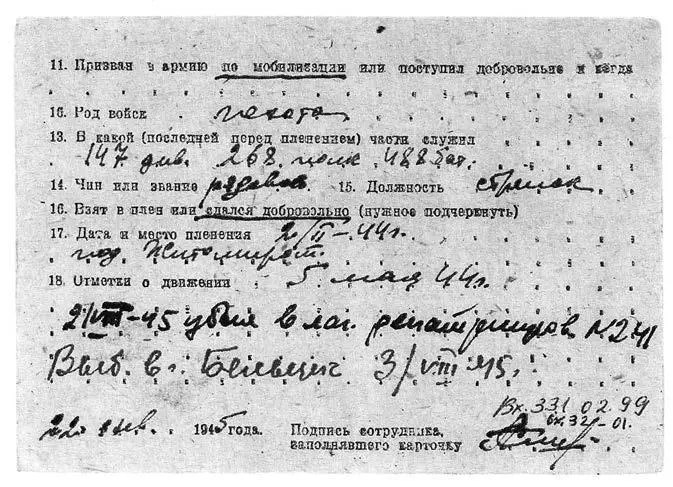 11. Призван в армию по мобилизации или поступил добровольно и когда
16. Род войск пехота
13. В какой (последней перед пленением) части служил
147 див. 268 полк 488 бат.
14. Чин или звание рядовой 15. Должность стрелок
16. Взят в плен или сдался добровольно (нужное подчеркнуть)
17. Дата и место пленения 2/II-44г.
под Житомиром
18. Отметки о движении 5 мая 44г.
2/VIII-45 убыл в лаг. репатриируов N 241
Выб. в г. Бельцы 3/VIII 45г.
22 1945 года.
Подпись сотрудника,
заполнявшего карточку
Вх. 331 02.99
вх. 32 -01.